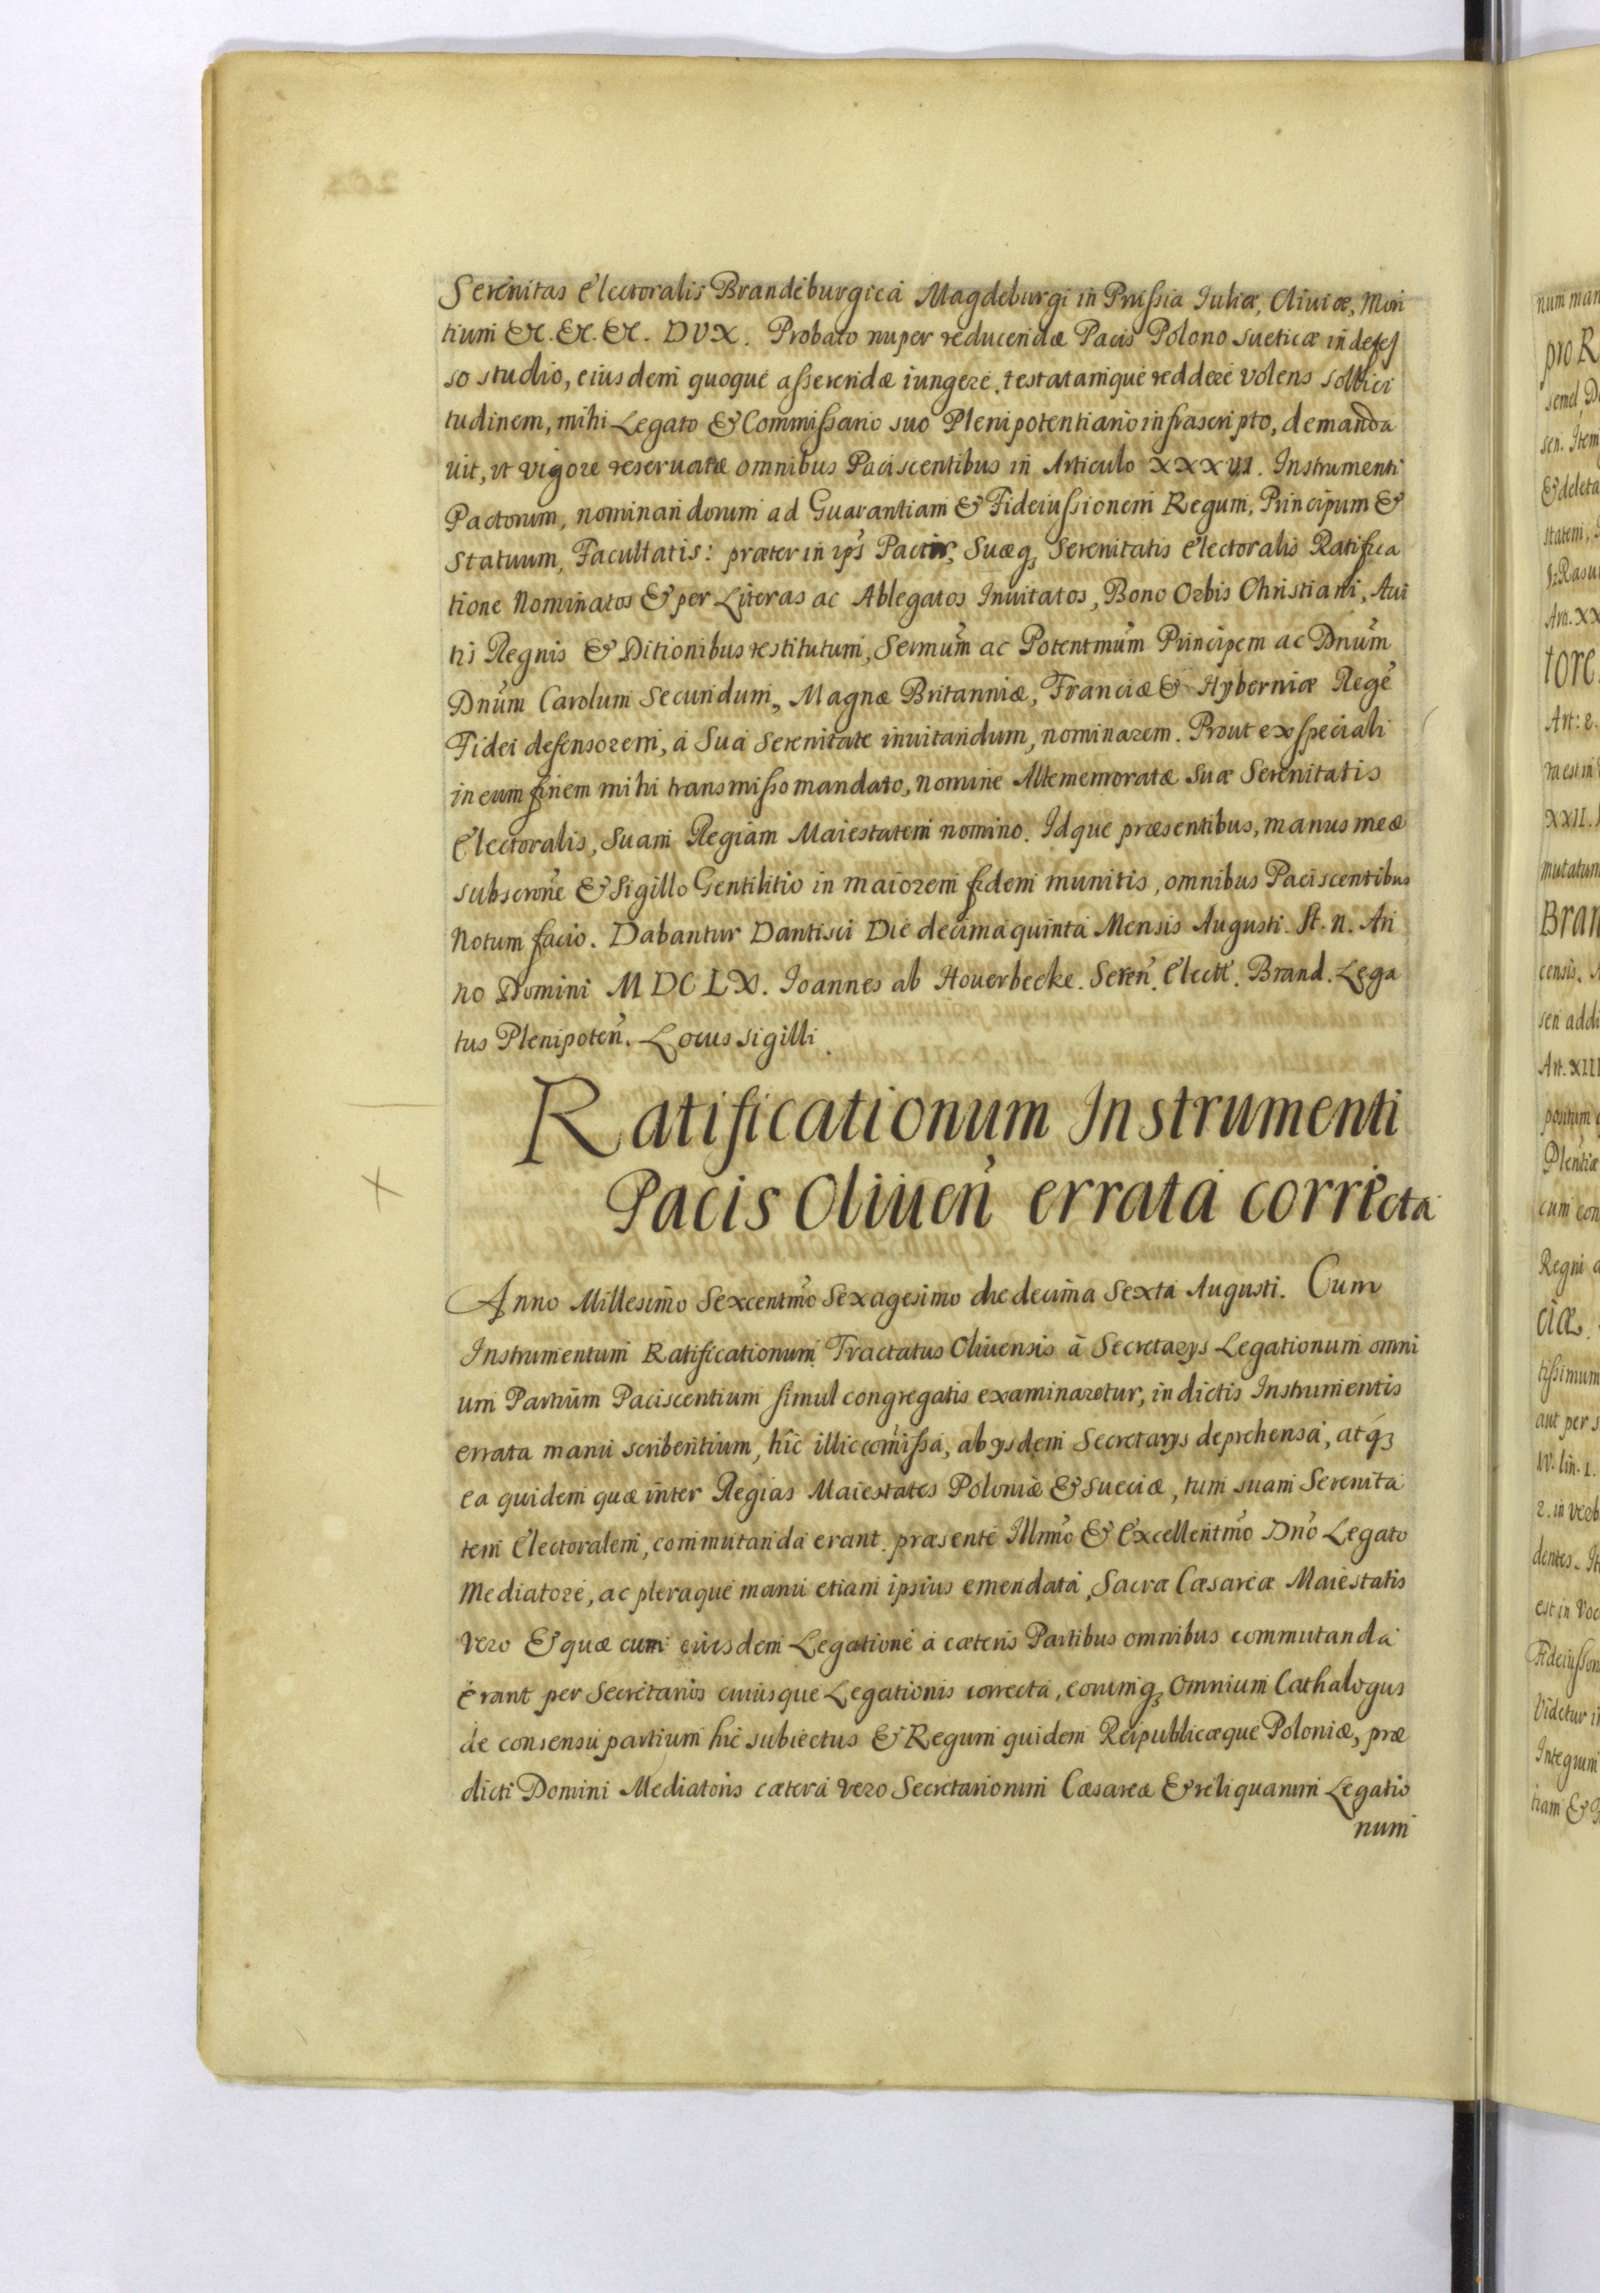 Serenitas Electoralis Brandeburgica Magdeburgi in Prussia Iuliæ, Cliuiæ, Mon
tium &c. &c. &c. DVX. Probato nuper reducendæ Pacis Polono Sueticæ indefes
so studio, eiusdem quoque asserendæ iungere, testatamque reddere volens sollici
tudinem, mihi Legato & Commissario suo Plenipotentiario infrascripto, demanda
uit, vt vigore reseruatæ omnibus Paciscentibus in Articulo XXXVI. Instrumenti
Pactorum, nominandorum ad Guarantiam & Fideiussionem Regum, Principum &
Statuum, Facultatis: præter in ipś Pactis, Suæq; Serenitatis Electoralis Ratifica
tione Nominatos & per Literas ac Ablegatos Inuitatos, Bono Orbis Christiani, Aui
tis Regnis & Ditionibus restitutum, Sermum̃ ac Potentmum̃ Principem ac Dnum̃
Dnum̃ Carolum Secundum, Magnæ Britanniæ, Franciæ & Hyberniæ Regẽ
Fidei defensorem, a Sua Serenitate inuitandum, nominarem. Prout ex speciali
in eum finem mihi transmisso mandato, nomine Altememoratæ Suæ Serenitatis
Electoralis, Suam Regiam Maiestatem nomino. Idque præsentibus, manus meæ
subscrone & Sigillo Gentilitio in maiorem fidem munitis, omnibus Paciscentibus
Notum facio. Dabantur Dantisci Die decima quinta Mensis Augusti. St. n. An
no Domini MDCLX. Ioannes ab Houerbecke. Seren̄. Elect. Brand. Lega
tus Plenipoten̄. Locus sigilli.
Ratificationum Instrumenti
Pacis Oliuen̄ errata correcta
Anno Millesimo Sexcentmo Sexagesimo die decima Sexta Augusti. Cum
Instrumentum Ratificationum Tractatus Oliuensis à Secretarys Legationum omni
um Partium Paciscentium simul congregatis examinaretur, in dictis Instrumentis
errata manu scribentium, hic illic com̃issa, ab ysdem Secretarys deprehensa, atq;
ea quidem quæ inter Regias Maiestates Poloniæ & Sueciæ, tum suam Serenita
tem Electoralem, commutanda erant. præsente Illmo & Excellentmo Dno Legato
Mediatore, ac pleraque manu etiam ipsius emendata, Sacræ Cæsareæ Maiestatis
vero & quæ cum eiusdem Legatione a cæteris Partibus omnibus commutanda
erant per Secretarios cuiusque Legationis correcta, eorumq; Omnium Cathalogus
de consensu partium hic subiectus & Regum quidem Reipublicæque Poloniæ, præ
dicti Domini Mediatoris cætera vero Secretariorum Cæsareæ & reliquarum Legatio
num